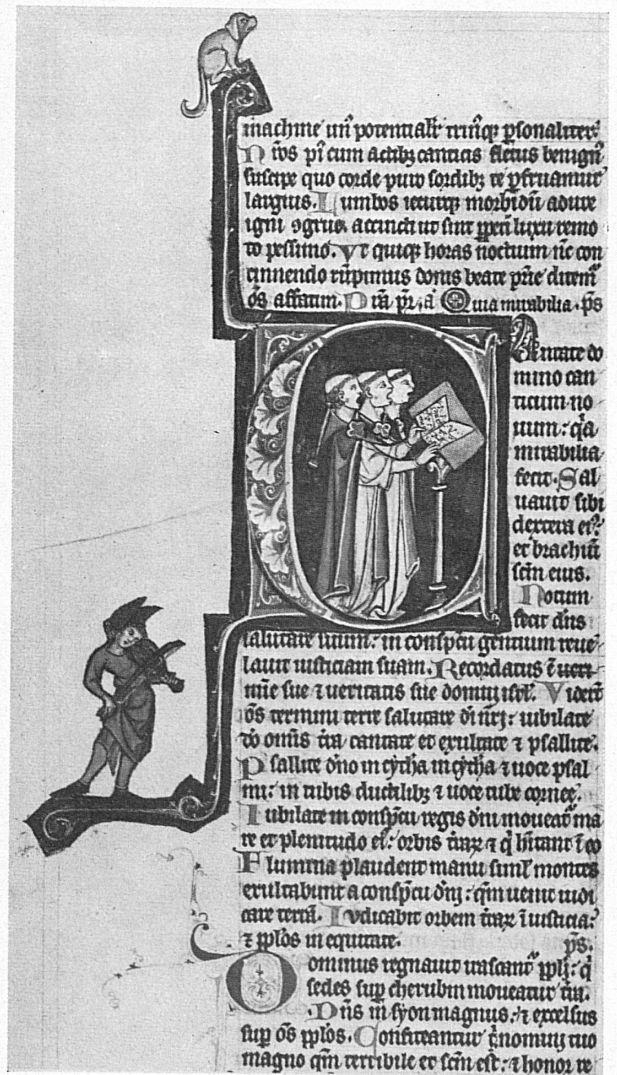 machine uñ potentialr trinq; psonaliter.
Nos pi cum actibz canticis fletus benign
suscipe quo corde puro sordibz te pfruamur
largius. Lumbos iecurq; morbidū adure
igni ɔgruo accincti ut sint ppeti luxu remo
to pessimo. Vt quiq; horas noctium nc con
cinnendo rūpimus donis beate prie ditem
ōs affatim. Quia mirabilia. ps
Cantate do
mino can
ticum no
uum: qa
mirabilia
fecit. Sal
uauit sibi
dextera ei?
et brachiū
scm eius.
Notum
fecit dns
salutare suum: in conspcu gentium reue
lauit iusticiam suam. Recordatus ē
sue ⁊ ueritatis sue domui isrl. Viderūt
ōs termini terre salutare di nri: iubilate
do omis tra cantate et exultate ⁊ psallite.
Psallite dno in cytha in cytha ⁊ uoce psal
mi: in tubis ductilibz ⁊ uoce tube cornee.
Iubilate in conspcu regis dni moueat ma
re et plenitudo ei: orbis trar ⁊ q hitant ī eo
Flumina plaudent manu siml montes
exultabunt a conspcu dni: qm uenit iudi
care terrā. Iudicabit orbem trar ī iusticia:
⁊ pplos in equitate. ps.
Dominus regnauit irascant ppli: q
sedes sup cherubin moueatur tra.
Dns in syon magnus: ⁊ excelsus
sup ōs pplos. Confiteantur nomini tuo
magno qm terribile et scm est: ⁊ honor re